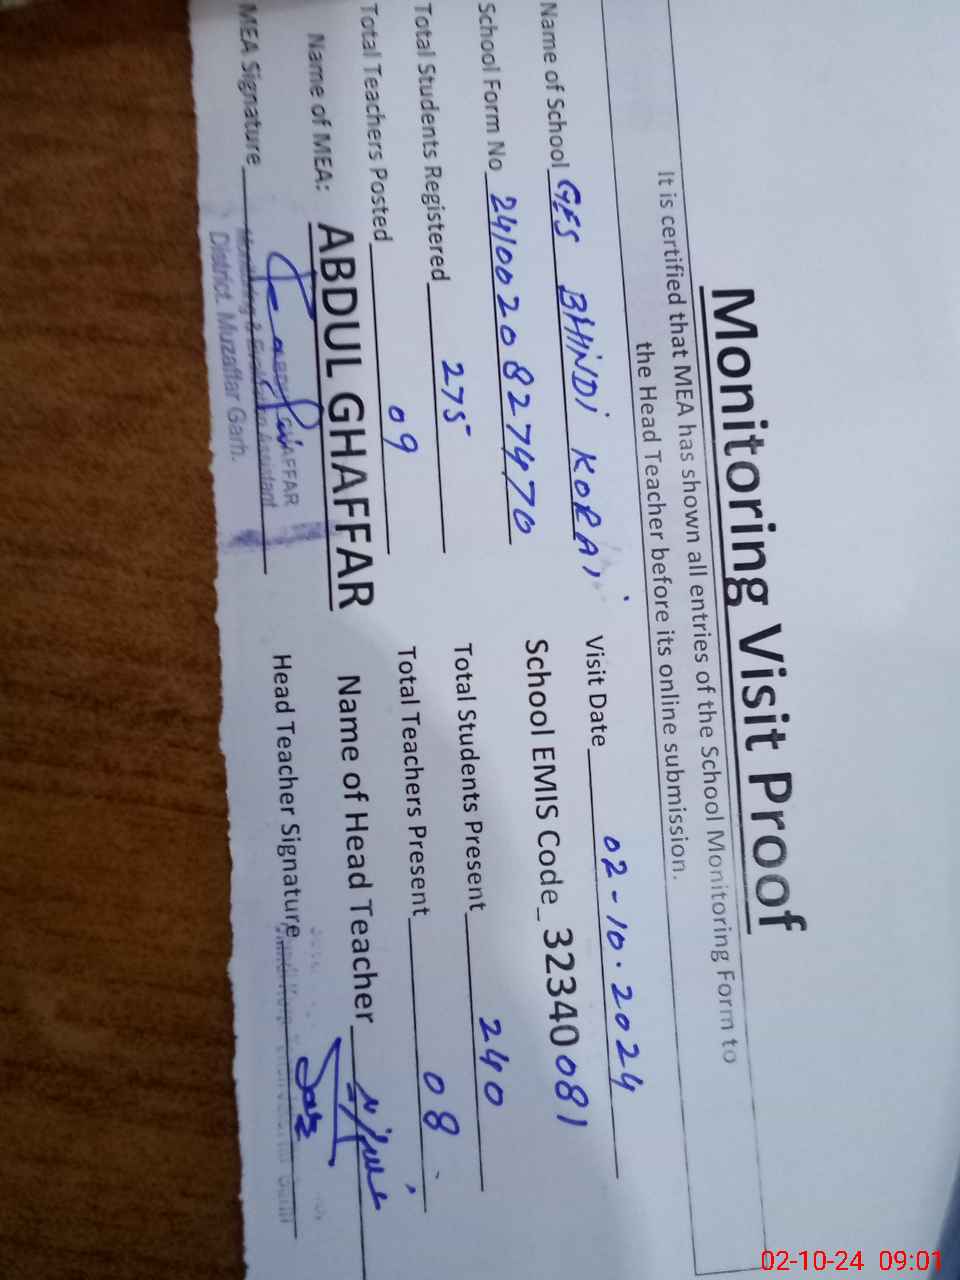 Monitoring Visit Proof
It is certified that MEA has shown all entries of the School Monitoring Form to
the Head Teacher before its online submission.
Name of School GES BHINDI KORAI Visit Date 02-10-2024
School Form No 2410020827470 School EMIS Code_32340081
Total Students Registered 275 Total Students Present 240
Total Teachers Posted 09 Total Teachers Present 08
Name of MEA: ABDUL GHAFFAR Name of Head Teacher
MEA Signature Head Teacher Signature
GHAFFAR
Monitoring & Evaluation Assistant
District. Muzaffar Garh.
02-10-24 09:01